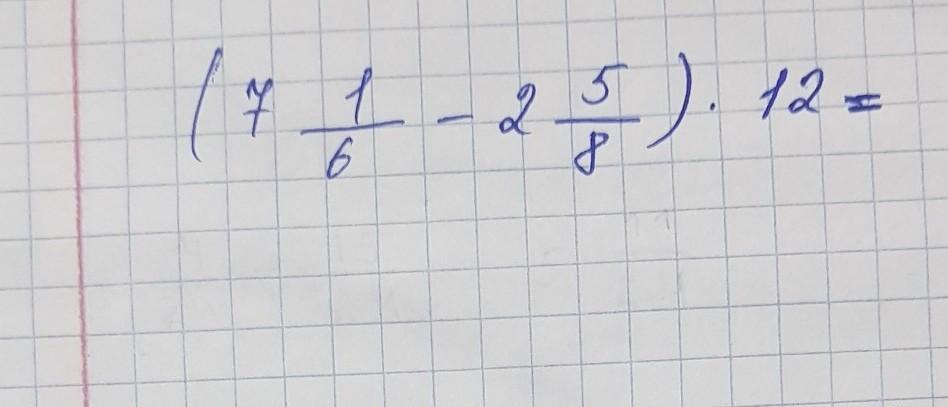 (7 1/6 - 2 5/8) · 12 =